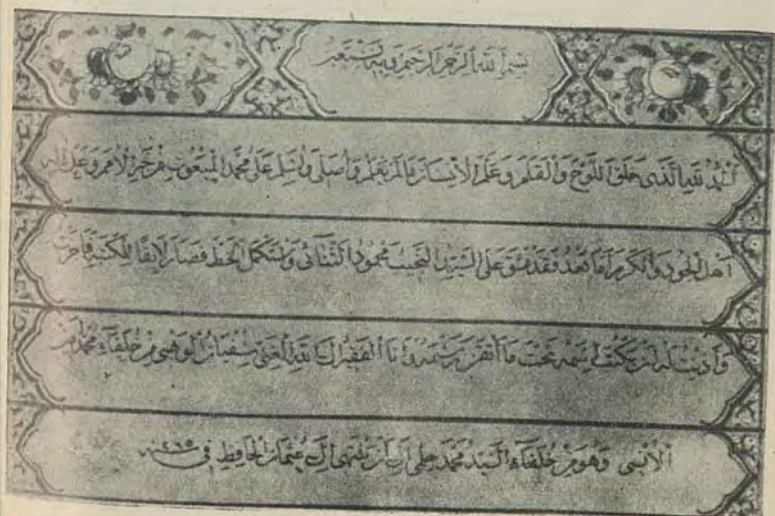 بسم الله الرحمن الرحيم وبه نستعين
الحمد لله الذى خلق اللوح والقلم وعلم الانسان ما لم يعلم واصلى واسلم على محمد المبعوث من خير الامم وعلى اله
اهل الجود والكرم اما بعد فقد مشق على السيد النجيب محمود الثنائى واستكمل الخط فصار لائقا للكتبة فاجزت
واذنت له ان يكتب اسمه تحت ما انقن من رسمه وانا الفقير الى الله الغنى سفيان الوهبى من خلفاء محمد امين
الانسى وهو من خلفاء السيد محمد حلمى الى ان ينتهى الى عثمان الحافظ فى سنه